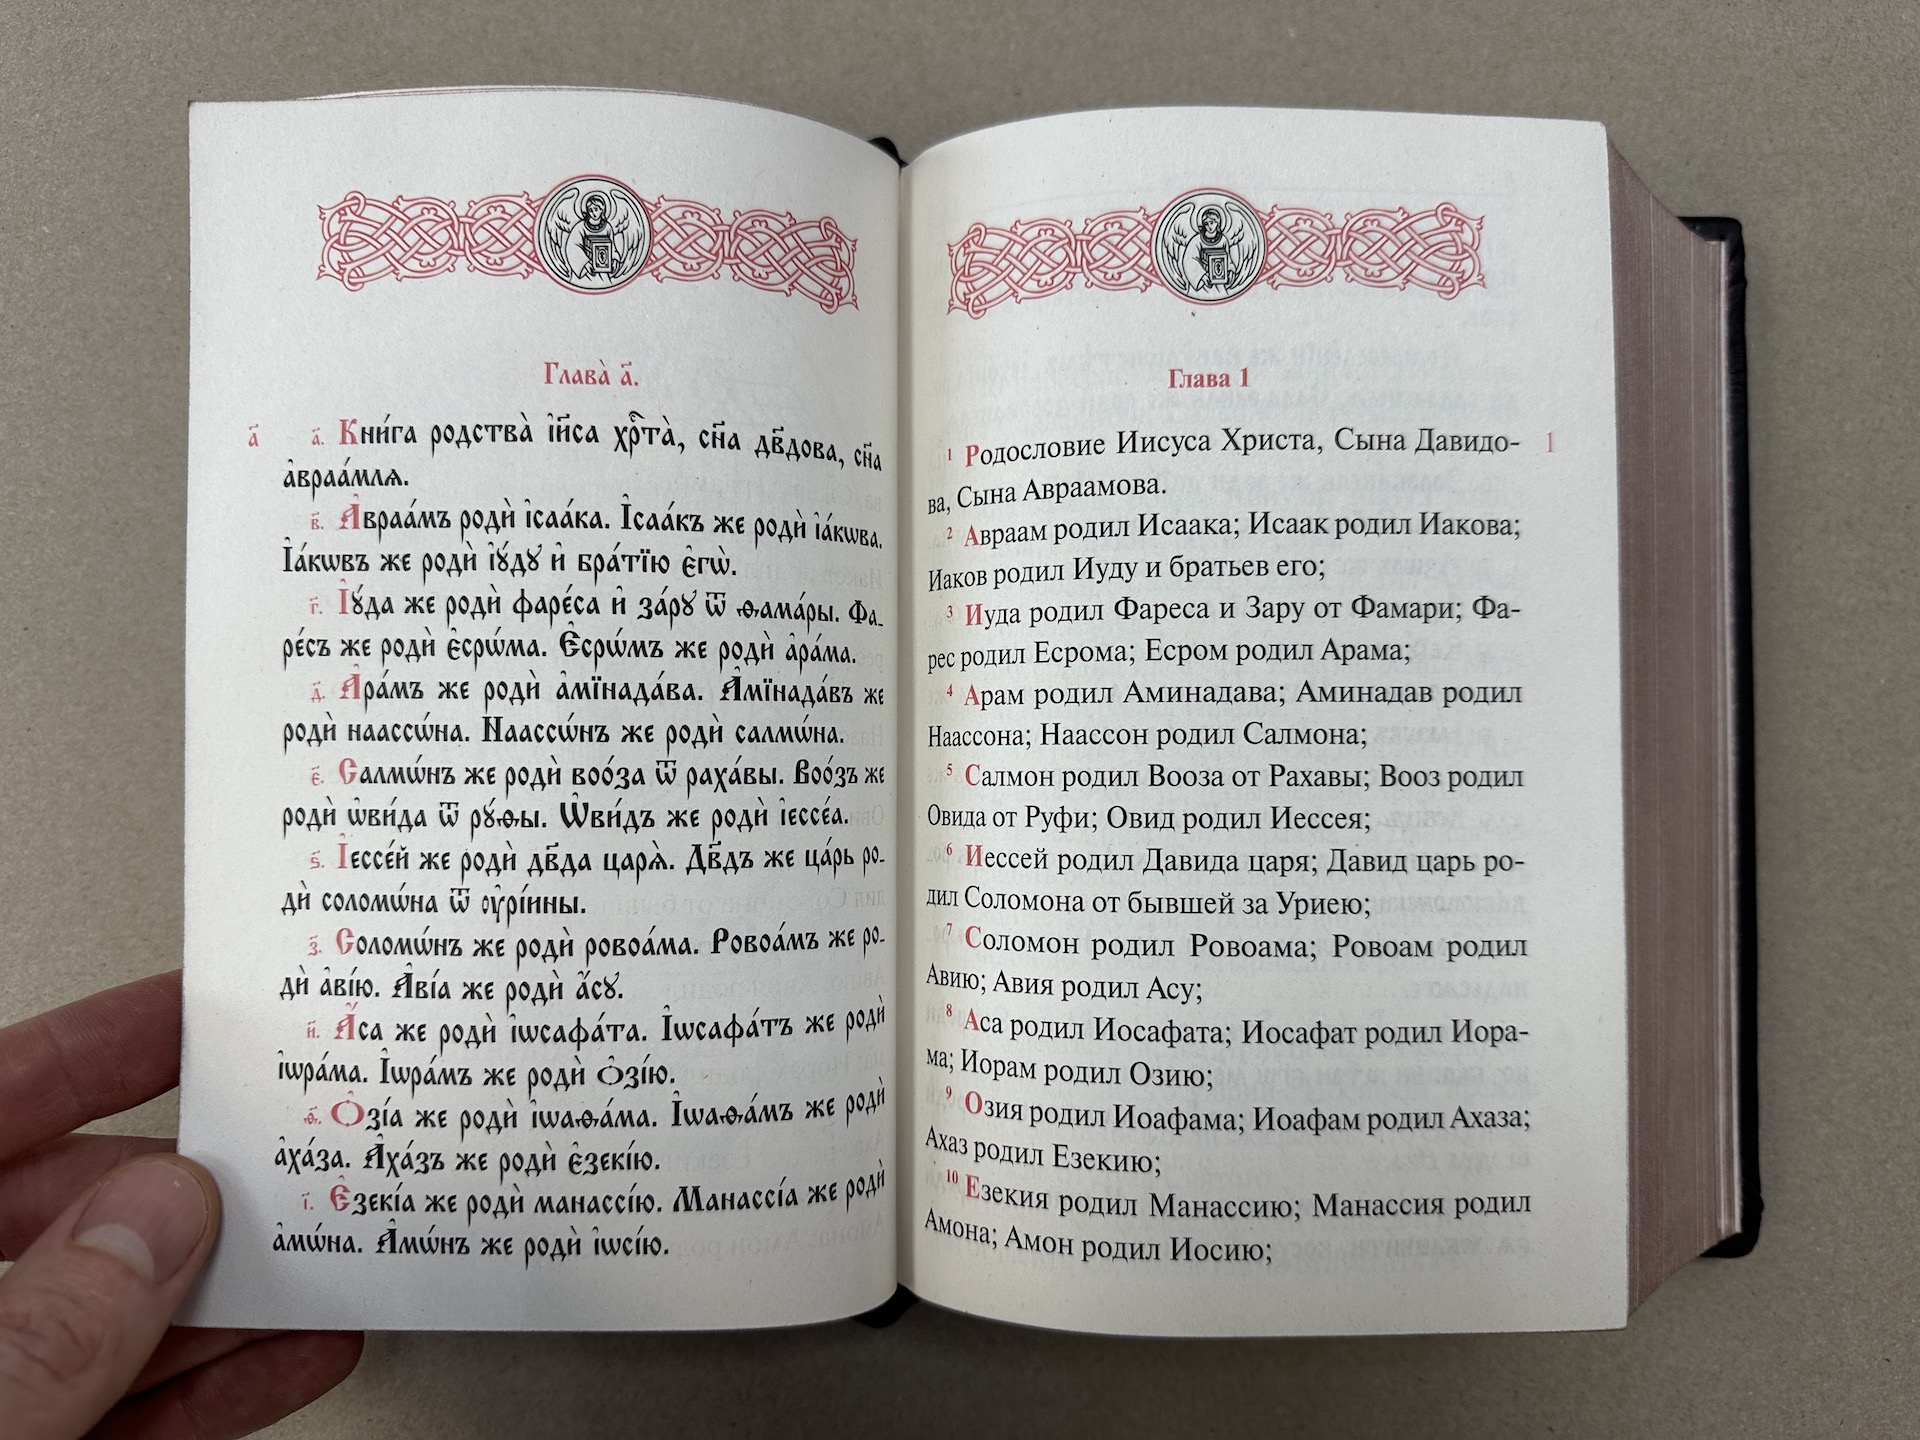 Глава̀ а҃.
а҃
а҃. Кни́га родства̀ і҆и҃са хр҇та̀, сн҃а дв҃дова, сн҃а
а҆враа́мля.
в҃. А҆враа́мъ родѝ і҆саа́ка. І҆саа́къ же родѝ і҆а́кѡва.
І҆а́кѡвъ же родѝ і҆ꙋ́дꙋ и҆ бра́тїю є҆гѡ̀.
г҃. І҆ꙋ́да же родѝ фаре́са и҆ за́рꙋ ѿ ѳама́ры. Фа-
ре́съ же родѝ є҆срѡ́ма. Є҆срѡ́мъ же родѝ а҆ра́ма.
д҃. А҆ра́мъ же родѝ а҆мїнада́ва. А҆мїнада́въ же
родѝ наассѡ́на. Наассѡ́нъ же родѝ салмѡ́на.
є҃. Салмѡ́нъ же родѝ воо́за ѿ раха́вы. Воо́зъ же
родѝ ѡ҆ви́да ѿ рꙋ́ѳы. Ѡ҆ви́дъ же родѝ і҆ессе́а.
ѕ҃. І҆ессе́й же родѝ дв҃да царѧ̀. Дв҃дъ же ца́рь ро-
дѝ соломѡ́на ѿ ᲂу҆рі́ины.
з҃. Соломѡ́нъ же родѝ ровоа́ма. Ровоа́мъ же ро-
дѝ а҆ві́ю. А҆ві́а же родѝ а҆́сꙋ.
и҃. А҆́са же родѝ і҆ѡсафа́та. І҆ѡсафа́тъ же родѝ
і҆ѡра́ма. І҆ѡра́мъ же родѝ ѻ҆зі́ю.
ѳ҃. Ѻ҆зі́а же родѝ і҆ѡаѳа́ма. І҆ѡаѳа́мъ же родѝ
а҆ха́за. А҆ха́зъ же родѝ є҆зекі́ю.
і҃. Є҆зекі́а же родѝ манассі́ю. Манассі́а же родѝ
а҆мѡ́на. А҆мѡ́нъ же родѝ і҆ѡсі́ю.
Глава 1
1 Родословие Иисуса Христа, Сына Давидо-
1
ва, Сына Авраамова.
2 Авраам родил Исаака; Исаак родил Иакова;
Иаков родил Иуду и братьев его;
3 Иуда родил Фареса и Зару от Фамари; Фа-
рес родил Есрома; Есром родил Арама;
4 Арам родил Аминадава; Аминадав родил
Наассона; Наассон родил Салмона;
5 Салмон родил Вооза от Рахавы; Вооз родил
Овида от Руфи; Овид родил Иессея;
6 Иессей родил Давида царя; Давид царь ро-
дил Соломона от бывшей за Уриею;
7 Соломон родил Ровоама; Ровоам родил
Авию; Авия родил Асу;
8 Аса родил Иосафата; Иосафат родил Иора-
ма; Иорам родил Озию;
9 Озия родил Иоафама; Иоафам родил Ахаза;
Ахаз родил Езекию;
10 Езекия родил Манассию; Манассия родил
Амона; Амон родил Иосию;